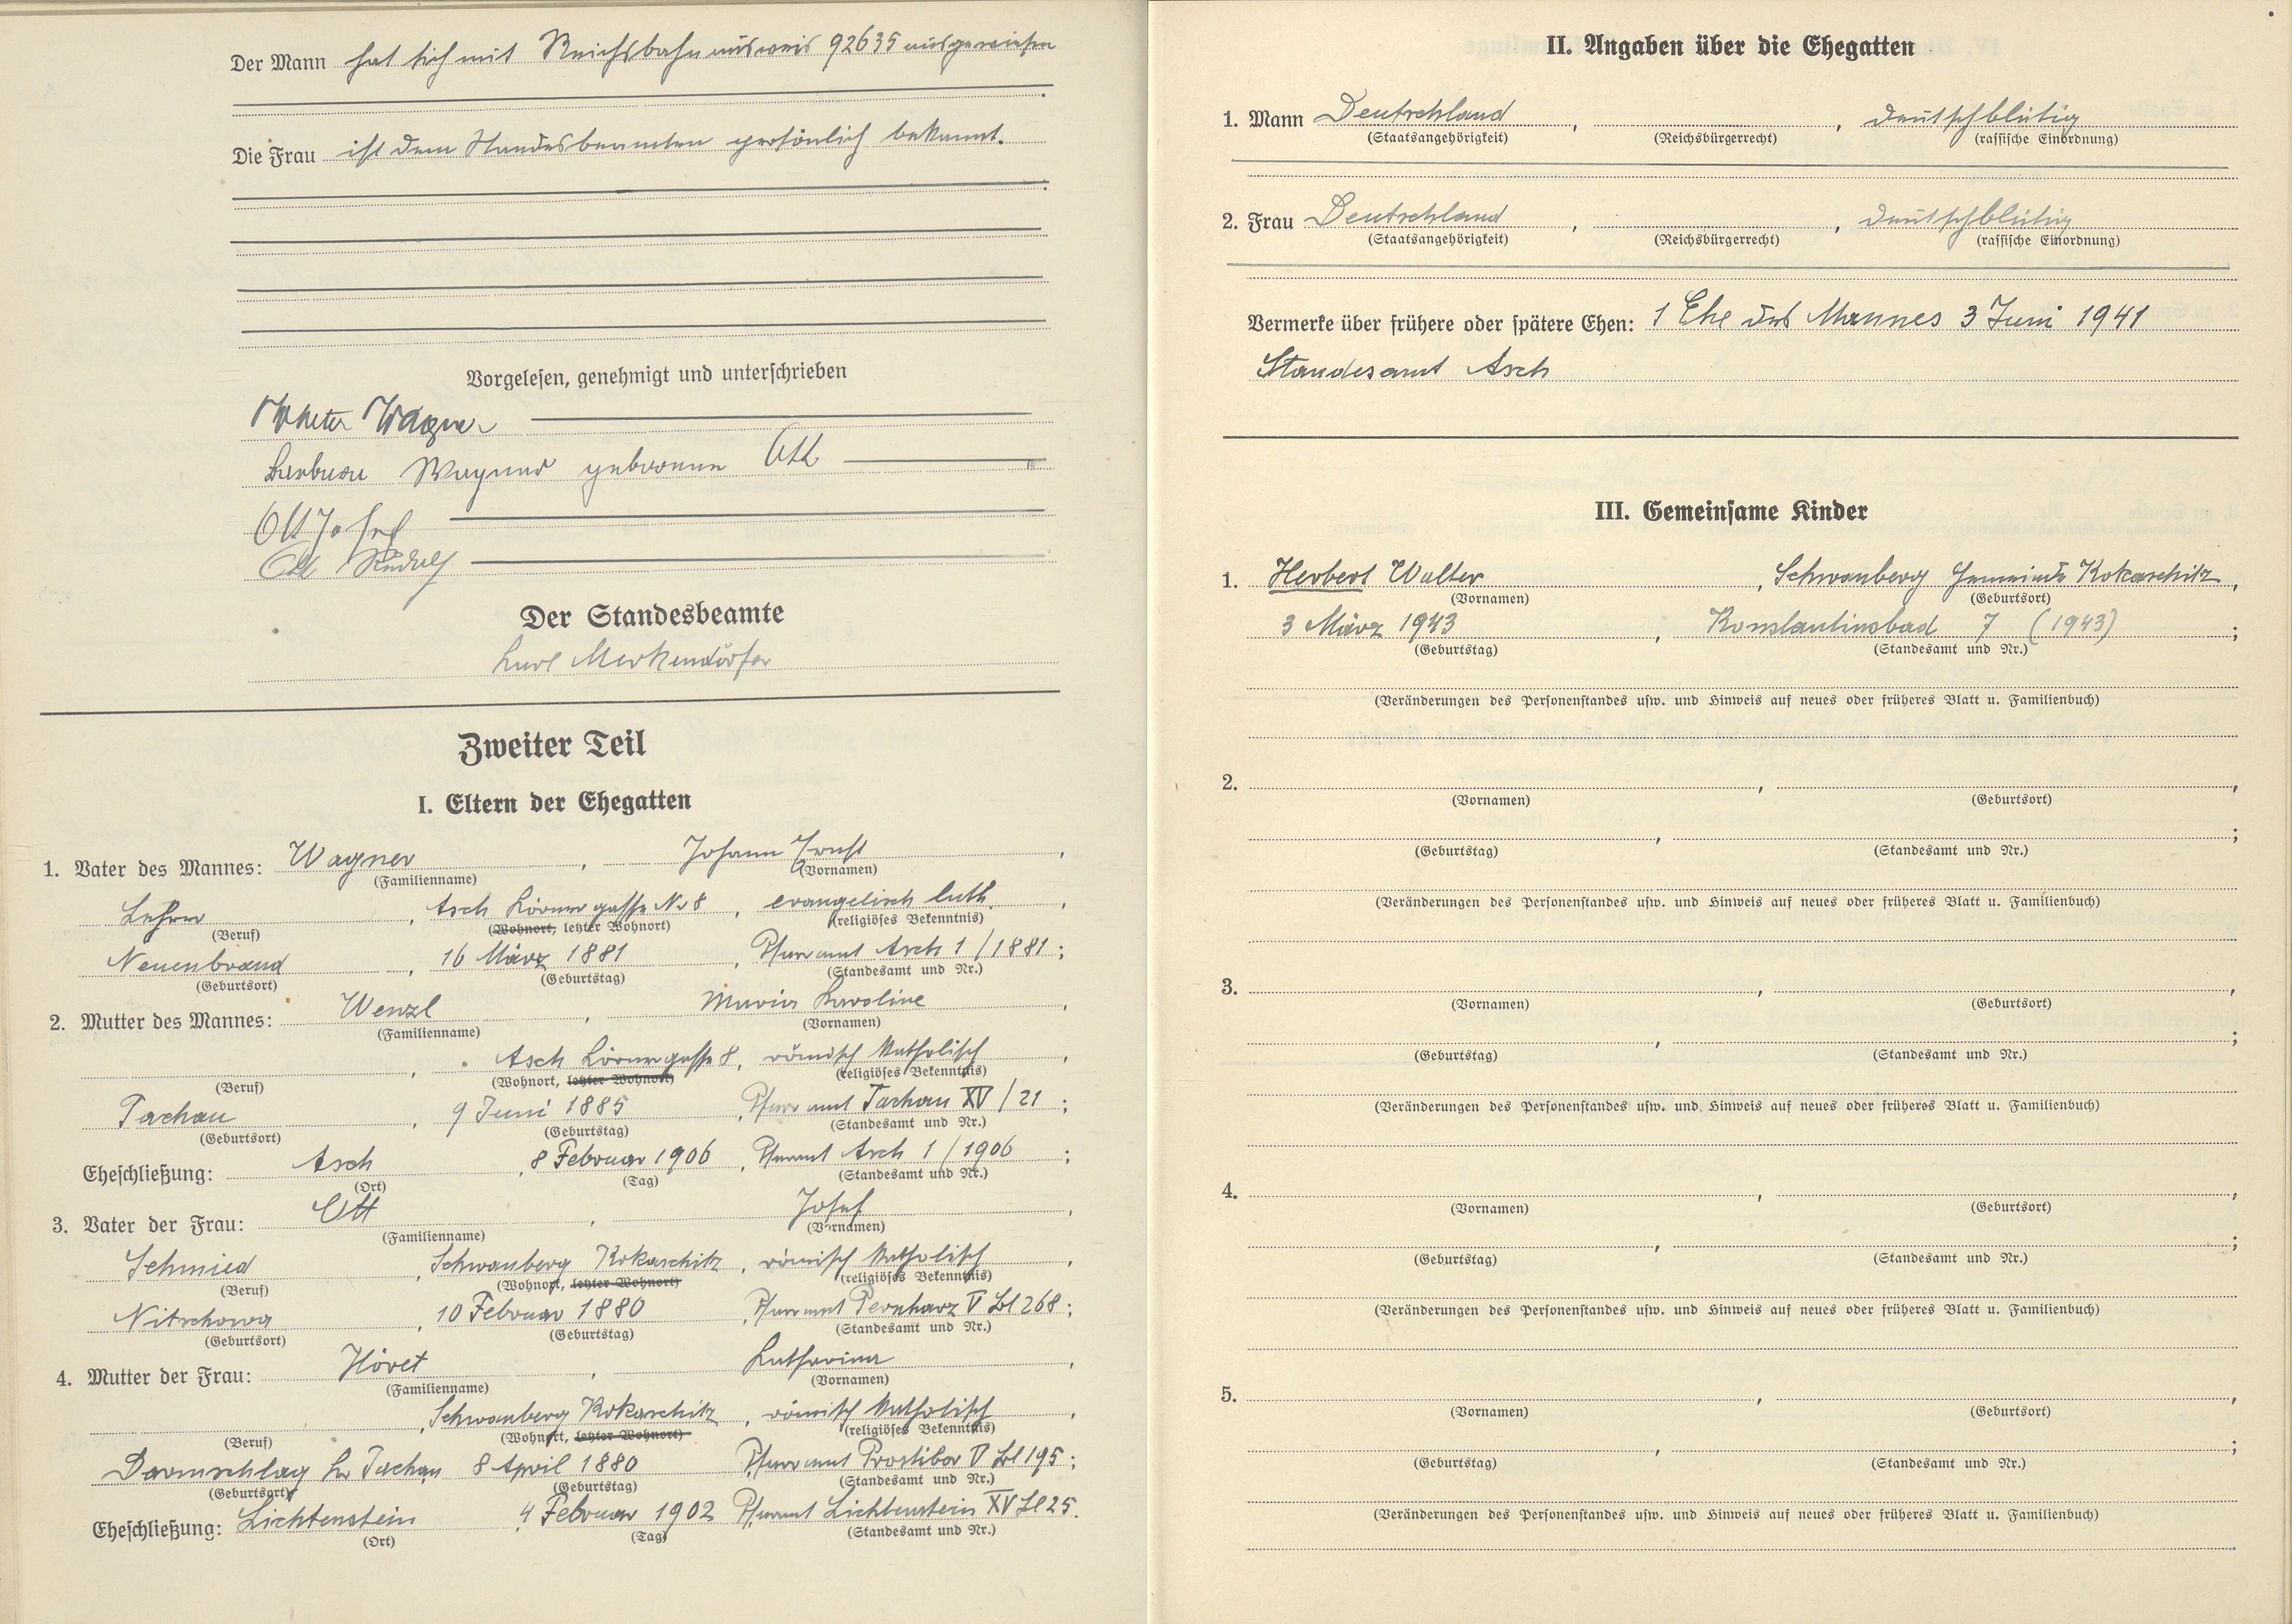 Der Mann hat sich mit Reichsbahnausweis 92635 ausgewiesen
Die Frau ist dem Standesbeamten persönlich bekannt.
Vorgelesen, genehmigt und unterschrieben
Walter Wagner
Barbara Wagner geborene Ott
Ott Josef
Ott Rudolf
Der Standesbeamte
Karl Merkendörfer
Zweiter Teil
I. Eltern der Ehegatten
1. Vater des Mannes: Wagner, Johann Ernst,
(Familienname) (Vornamen)
Lehrer, Asch Körnergasse Nr 8, evangelisch luth.,
(Beruf) (Wohnort, letzter Wohnort) (religiöses Bekenntnis)
Neuenbrand, 16 März 1881, Pfarramt Asch 1/1881;
(Geburtsort) (Geburtstag) (Standesamt und Nr.)
2. Mutter des Mannes: Wenzl, Maria Karoline,
(Familienname) (Vornamen)
, Asch Körnergasse 8, römisch katholisch,
(Beruf) (Wohnort, letzter Wohnort) (religiöses Bekenntnis)
Tachau, 9 Juni 1885, Pfarramt Tachau XV/21;
(Geburtsort) (Geburtstag) (Standesamt und Nr.)
Eheschließung: Asch, 8 Februar 1906, Pfarramt Asch 1/1906;
(Ort) (Tag) (Standesamt und Nr.)
3. Vater der Frau: Ott, Josef,
(Familienname) (Vornamen)
Schmied, Schwanberg Kokaschitz, römisch katholisch,
(Beruf) (Wohnort, letzter Wohnort) (religiöses Bekenntnis)
Nitschowa, 10 Februar 1880, Pfarramt Pernharz V Bl 268;
(Geburtsort) (Geburtstag) (Standesamt und Nr.)
4. Mutter der Frau: Höret, Katharina,
(Familienname) (Vornamen)
, Schwanberg Kokaschitz, römisch katholisch,
(Beruf) (Wohnort, letzter Wohnort) (religiöses Bekenntnis)
Darmschlag Kr Tachau, 8 April 1880, Pfarramt Prostibor V Bl 195;
(Geburtsort) (Geburtstag) (Standesamt und Nr.)
Eheschließung: Lichtenstein, 4 Februar 1902, Pfarramt Lichtenstein XV Bl 25.
(Ort) (Tag) (Standesamt und Nr.)
II. Angaben über die Ehegatten
1. Mann Deutschland, , deutschblütig
(Staatsangehörigkeit) (Reichsbürgerrecht) (rassische Einordnung)
2. Frau Deutschland, , deutschblütig
(Staatsangehörigkeit) (Reichsbürgerrecht) (rassische Einordnung)
Vermerke über frühere oder spätere Ehen: 1 Ehe des Mannes 3 Juni 1941
Standesamt Asch
III. Gemeinsame Kinder
1. Herbert Walter, Schwanberg Gemeinde Kokaschitz,
(Vornamen) (Geburtsort)
3 März 1943, Konstantinsbad 7 (1943);
(Geburtstag) (Standesamt und Nr.)
(Veränderungen des Personenstandes usw. und Hinweis auf neues oder früheres Blatt u. Familienbuch)
2. , ,
(Vornamen) (Geburtsort)
, ;
(Geburtstag) (Standesamt und Nr.)
(Veränderungen des Personenstandes usw. und Hinweis auf neues oder früheres Blatt u. Familienbuch)
3. , ,
(Vornamen) (Geburtsort)
, ;
(Geburtstag) (Standesamt und Nr.)
(Veränderungen des Personenstandes usw. und Hinweis auf neues oder früheres Blatt u. Familienbuch)
4. , ,
(Vornamen) (Geburtsort)
, ;
(Geburtstag) (Standesamt und Nr.)
(Veränderungen des Personenstandes usw. und Hinweis auf neues oder früheres Blatt u. Familienbuch)
5. , ,
(Vornamen) (Geburtsort)
, ;
(Geburtstag) (Standesamt und Nr.)
(Veränderungen des Personenstandes usw. und Hinweis auf neues oder früheres Blatt u. Familienbuch)